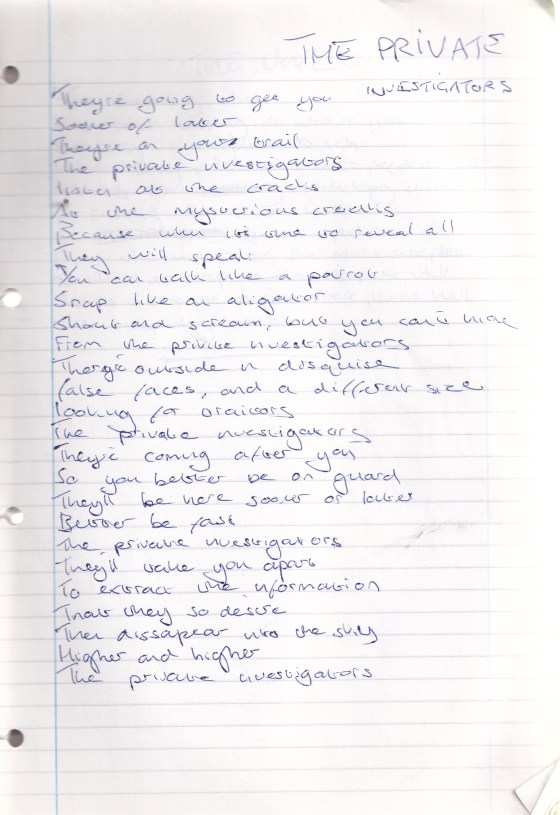 THE PRIVATE
INVESTIGATORS
They're going to get you
Sooner or later
They're on your trail
The private investigators
Listen at the cracks
At the mysterious cracks
Because when its time to reveal all
They will speak
You can talk like a parrot
Snap like an aligator
Shout and scream, but you can't hide
From the private investigators
There outside in disguise
False faces, and a different size
Looking for traitors
The private investigators
They're coming after you
So you better be on guard
They'll be here sooner or later
Better be fast
The private investigators
They'll take you apart
To extract the information
That they so desire
Then dissapear into the sky
Higher and higher
The private investigators